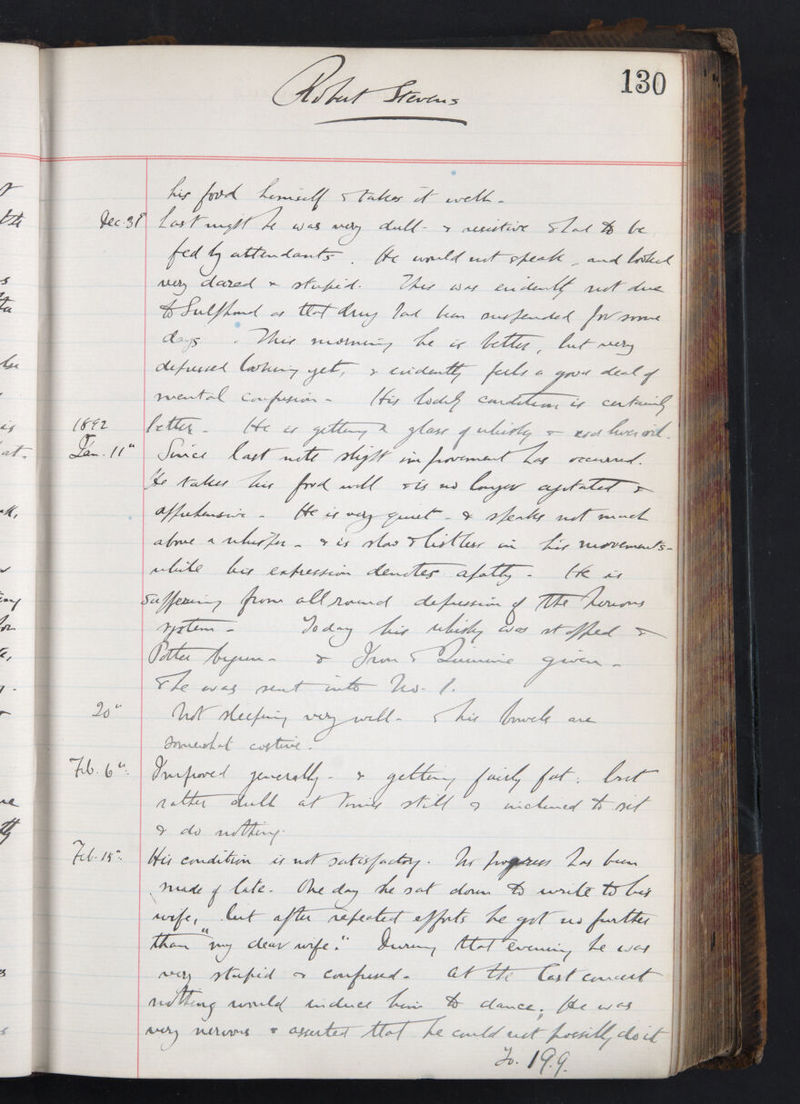 130
Robert Stevens
his food himself & takes it well -
Dec. 31st Last night he was very dull - & resistive & had to be
fed by attendants. He would not speak, and looked
very dazed & stupid. This was evidently not due
to Sulphonal as that drug had been suspended for some
days. This morning he is better, but very
depressed looking yet, & evidently feels a good deal of
mental confusion - His bodily condition is certainly
1892 better - He is getting a glass of whisky & cod liver oil.
Jan. 11th Since last note slight improvement has occurred.
He takes his food well & is no longer agitated &
apprehensive - He is very quiet - & speaks not much
above a whisper - & is slow & listless in his movements -
while his expression denotes apathy - He is
suffering from all round depression of the nervous
system - Today his whisky was stopped &
Porter begun - & Iron & Quinine given -
& he was sent into No. 1.
20th Not sleeping very well - & his bowels are
somewhat costive.
Feb. 6th. Improved generally - & getting fairly fat: but
rather dull at times still & inclined to sit
& do nothing.
Feb. 15th. His condition is not satisfactory. No progress has been
made of late. One day he sat down to write to his
wife, but after repeated efforts he got no further
than "my dear wife." During that evening he was
very stupid & confused - At the last concert
nothing would induce him to dance; He was
very nervous & asserted that he could not possibly do it
Fo. 199.